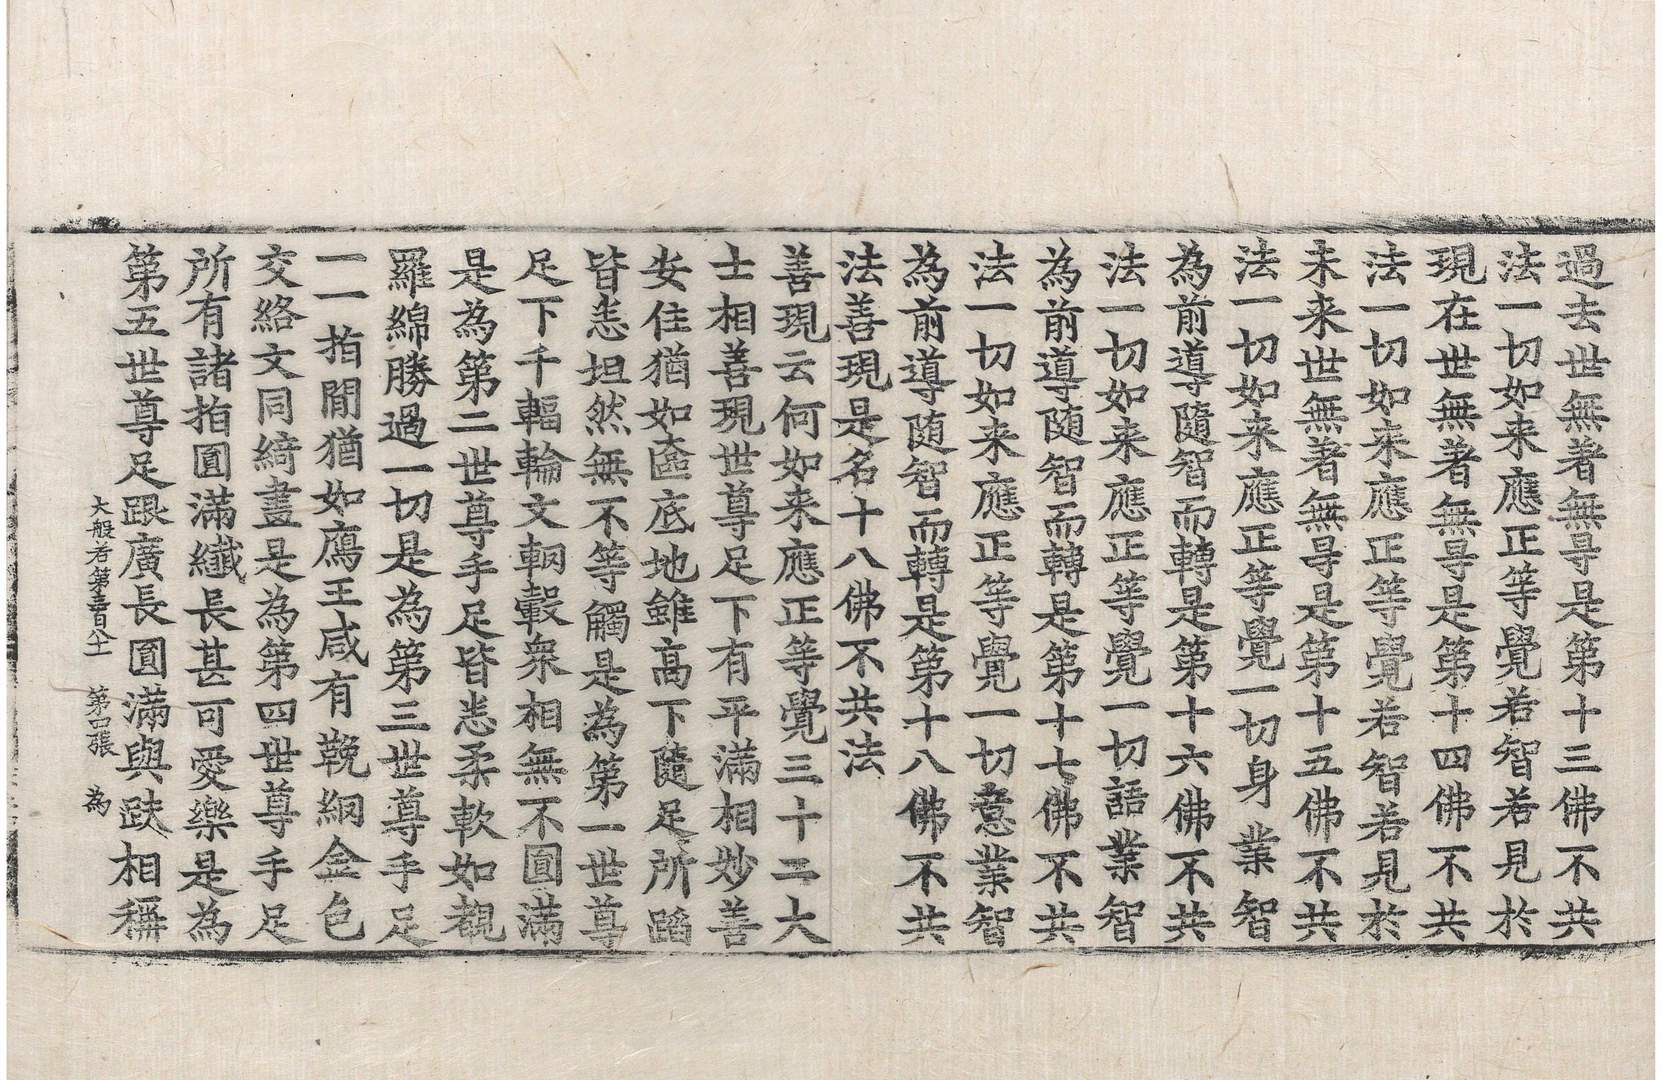 過去世無著無㝵是第十三佛不共
法一切如来應正等覺若智若見於
現在世無著無㝵是第十四佛不共
法一切如来應正等覺若智若見於
未来世無著無㝵是第十五佛不共
法一切如来應正等覺一切身業智
為前導隨智而轉是第十六佛不共
法一切如来應正等覺一切語業智
為前導随智而轉是第十七佛不共
法一切如来應正等覺一切意業智
為前導随智而轉是第十八佛不共
法善現是名十八佛不共法
善現云何如来應正等覺三十二大
士相善現世尊足下有平滿相妙善
安住猶如奩底地雖高下隨足所蹈
皆悉坦然無不等觸是為第一世尊
足下千輻輪文輞轂衆相無不圓滿
是為第二世尊手足皆悉柔軟如覩
羅綿勝過一切是為第三世尊手足
一一指間猶如鴈王咸有鞔網金色
交絡文同綺畫是為第四世尊手足
所有諸指圓滿纖長甚可愛樂是為
第五世尊足跟廣長圓滿與趺相稱
大般若第三百八十一　第四張　為